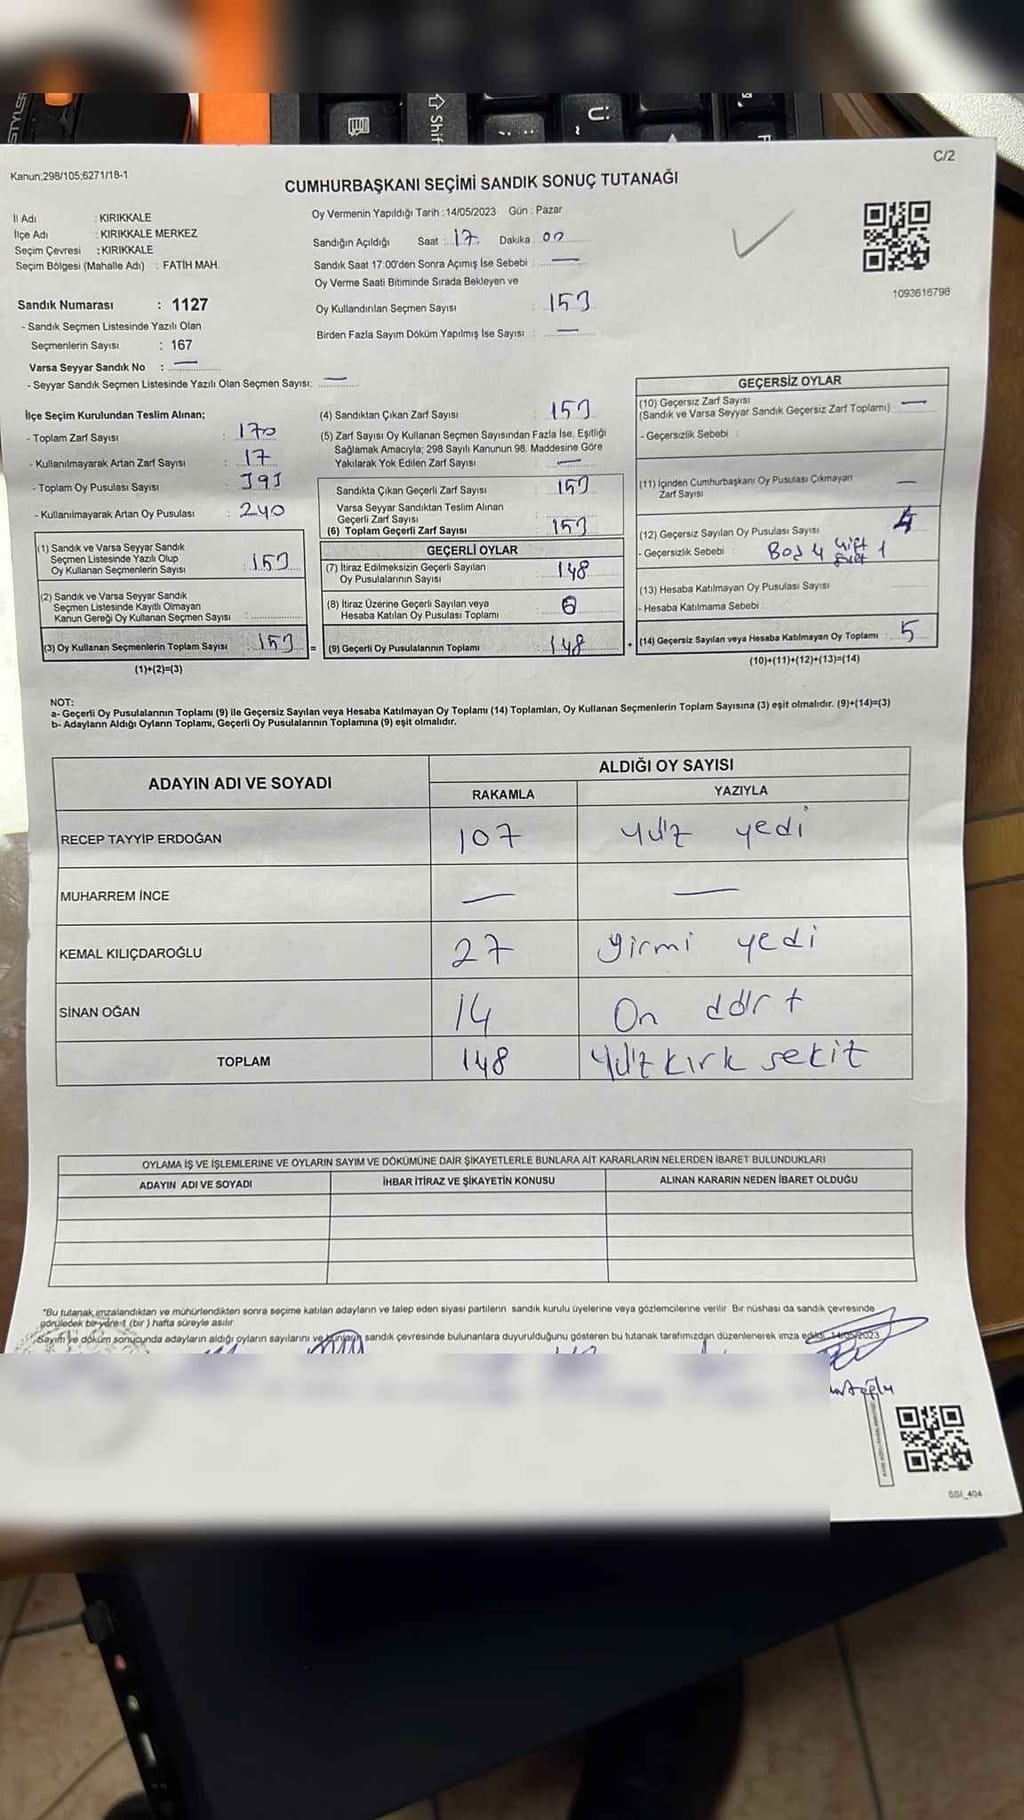 C/2
Kanun;298/105;6271/18-1
CUMHURBAŞKANI SEÇİMİ SANDIK SONUÇ TUTANAĞI
İl Adı : KIRIKKALE
İlçe Adı : KIRIKKALE MERKEZ
Seçim Çevresi : KIRIKKALE
Seçim Bölgesi (Mahalle Adı) : FATİH MAH.
Sandık Numarası : 1127
- Sandık Seçmen Listesinde Yazılı Olan
Seçmenlerin Sayısı : 167
Varsa Seyyar Sandık No : —
- Seyyar Sandık Seçmen Listesinde Yazılı Olan Seçmen Sayısı: —
Oy Vermenin Yapıldığı Tarih : 14/05/2023 Gün : Pazar
Sandığın Açıldığı Saat : 17 Dakika 00
Sandık Saat 17:00'den Sonra Açımış İse Sebebi : —
Oy Verme Saati Bitiminde Sırada Bekleyen ve
Oy Kullandırılan Seçmen Sayısı : 153
Birden Fazla Sayım Döküm Yapılmış İse Sayısı : —
1093616798
İlçe Seçim Kurulundan Teslim Alınan;
- Toplam Zarf Sayısı : 170
- Kullanılmayarak Artan Zarf Sayısı : 17
- Toplam Oy Pusulası Sayısı : 393
- Kullanılmayarak Artan Oy Pusulası : 240
(1) Sandık ve Varsa Seyyar Sandık
Seçmen Listesinde Yazılı Olup
Oy Kullanan Seçmenlerin Sayısı : 153
(2) Sandık ve Varsa Seyyar Sandık
Seçmen Listesinde Kayıtlı Olmayan
Kanun Gereği Oy Kullanan Seçmen Sayısı :
(3) Oy Kullanan Seçmenlerin Toplam Sayısı : 153 =
(1)+(2)=(3)
(4) Sandıktan Çıkan Zarf Sayısı : 153
(5) Zarf Sayısı Oy Kullanan Seçmen Sayısından Fazla İse, Eşitliği
Sağlamak Amacıyla; 298 Sayılı Kanunun 98. Maddesine Göre
Yakılarak Yok Edilen Zarf Sayısı : —
Sandıkta Çıkan Geçerli Zarf Sayısı : 153
Varsa Seyyar Sandıktan Teslim Alınan
Geçerli Zarf Sayısı :
(6) Toplam Geçerli Zarf Sayısı : 153
GEÇERLİ OYLAR
(7) İtiraz Edilmeksizin Geçerli Sayılan
Oy Pusulalarının Sayısı : 148
(8) İtiraz Üzerine Geçerli Sayılan veya
Hesaba Katılan Oy Pusulası Toplamı :
(9) Geçerli Oy Pusulalarının Toplamı : 148 +
GEÇERSİZ OYLAR
(10) Geçersiz Zarf Sayısı —
(Sandık ve Varsa Seyyar Sandık Geçersiz Zarf Toplamı)
- Geçersizlik Sebebi :
(11) İçinden Cumhurbaşkanı Oy Pusulası Çıkmayan —
Zarf Sayısı
(12) Geçersiz Sayılan Oy Pusulası Sayısı
- Geçersizlik Sebebi : Boş 4 çift evet 1
(13) Hesaba Katılmayan Oy Pusulası Sayısı
- Hesaba Katılmama Sebebi :
(14) Geçersiz Sayılan veya Hesaba Katılmayan Oy Toplamı : 5
(10)+(11)+(12)+(13)=(14)
NOT:
a- Geçerli Oy Pusulalarının Toplamı (9) ile Geçersiz Sayılan veya Hesaba Katılmayan Oy Toplamı (14) Toplamları, Oy Kullanan Seçmenlerin Toplam Sayısına (3) eşit olmalıdır. (9)+(14)=(3)
b- Adayların Aldığı Oyların Toplamı, Geçerli Oy Pusulalarının Toplamına (9) eşit olmalıdır.
ADAYIN ADI VE SOYADI
ALDIĞI OY SAYISI
RAKAMLA YAZIYLA
RECEP TAYYİP ERDOĞAN 107 Yüz yedi
MUHARREM İNCE — —
KEMAL KILIÇDAROĞLU 27 yirmi yedi
SİNAN OĞAN 14 On dört
TOPLAM 148 Yüz kırk sekiz
OYLAMA İŞ VE İŞLEMLERİNE VE OYLARIN SAYIM VE DÖKÜMÜNE DAİR ŞİKAYETLERLE BUNLARA AİT KARARLARIN NELERDEN İBARET BULUNDUKLARI
ADAYIN ADI VE SOYADI İHBAR İTİRAZ VE ŞİKAYETİN KONUSU ALINAN KARARIN NEDEN İBARET OLDUĞU
*Bu tutanak imzalandıktan ve mühürlendikten sonra seçime katılan adayların ve talep eden siyasi partilerin sandık kurulu üyelerine veya gözlemcilerine verilir. Bir nüshası da sandık çevresinde
görülecek bir yere 1 (bir) hafta süreyle asılır.
Sayım ve döküm sonucunda adayların aldığı oyların sayılarını ve bunların sandık çevresinde bulunanlara duyurulduğunu gösteren bu tutanak tarafımızdan düzenlenerek imza edildi. 14/05/2023
SSI_404
Shift
Ü